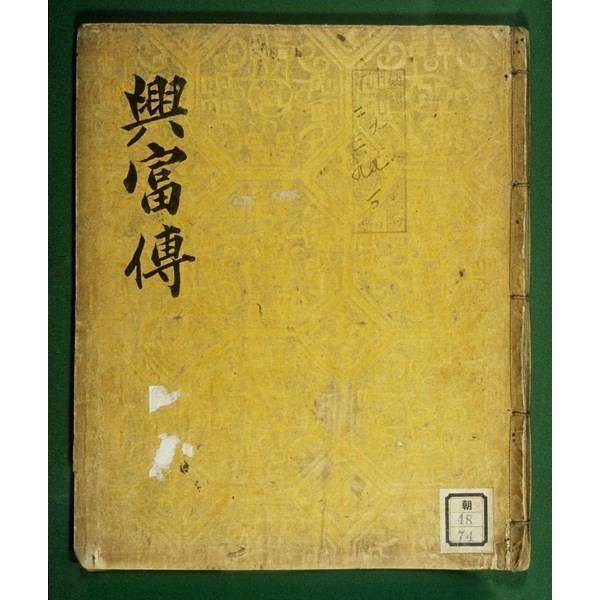 興富傳
朝
48
74